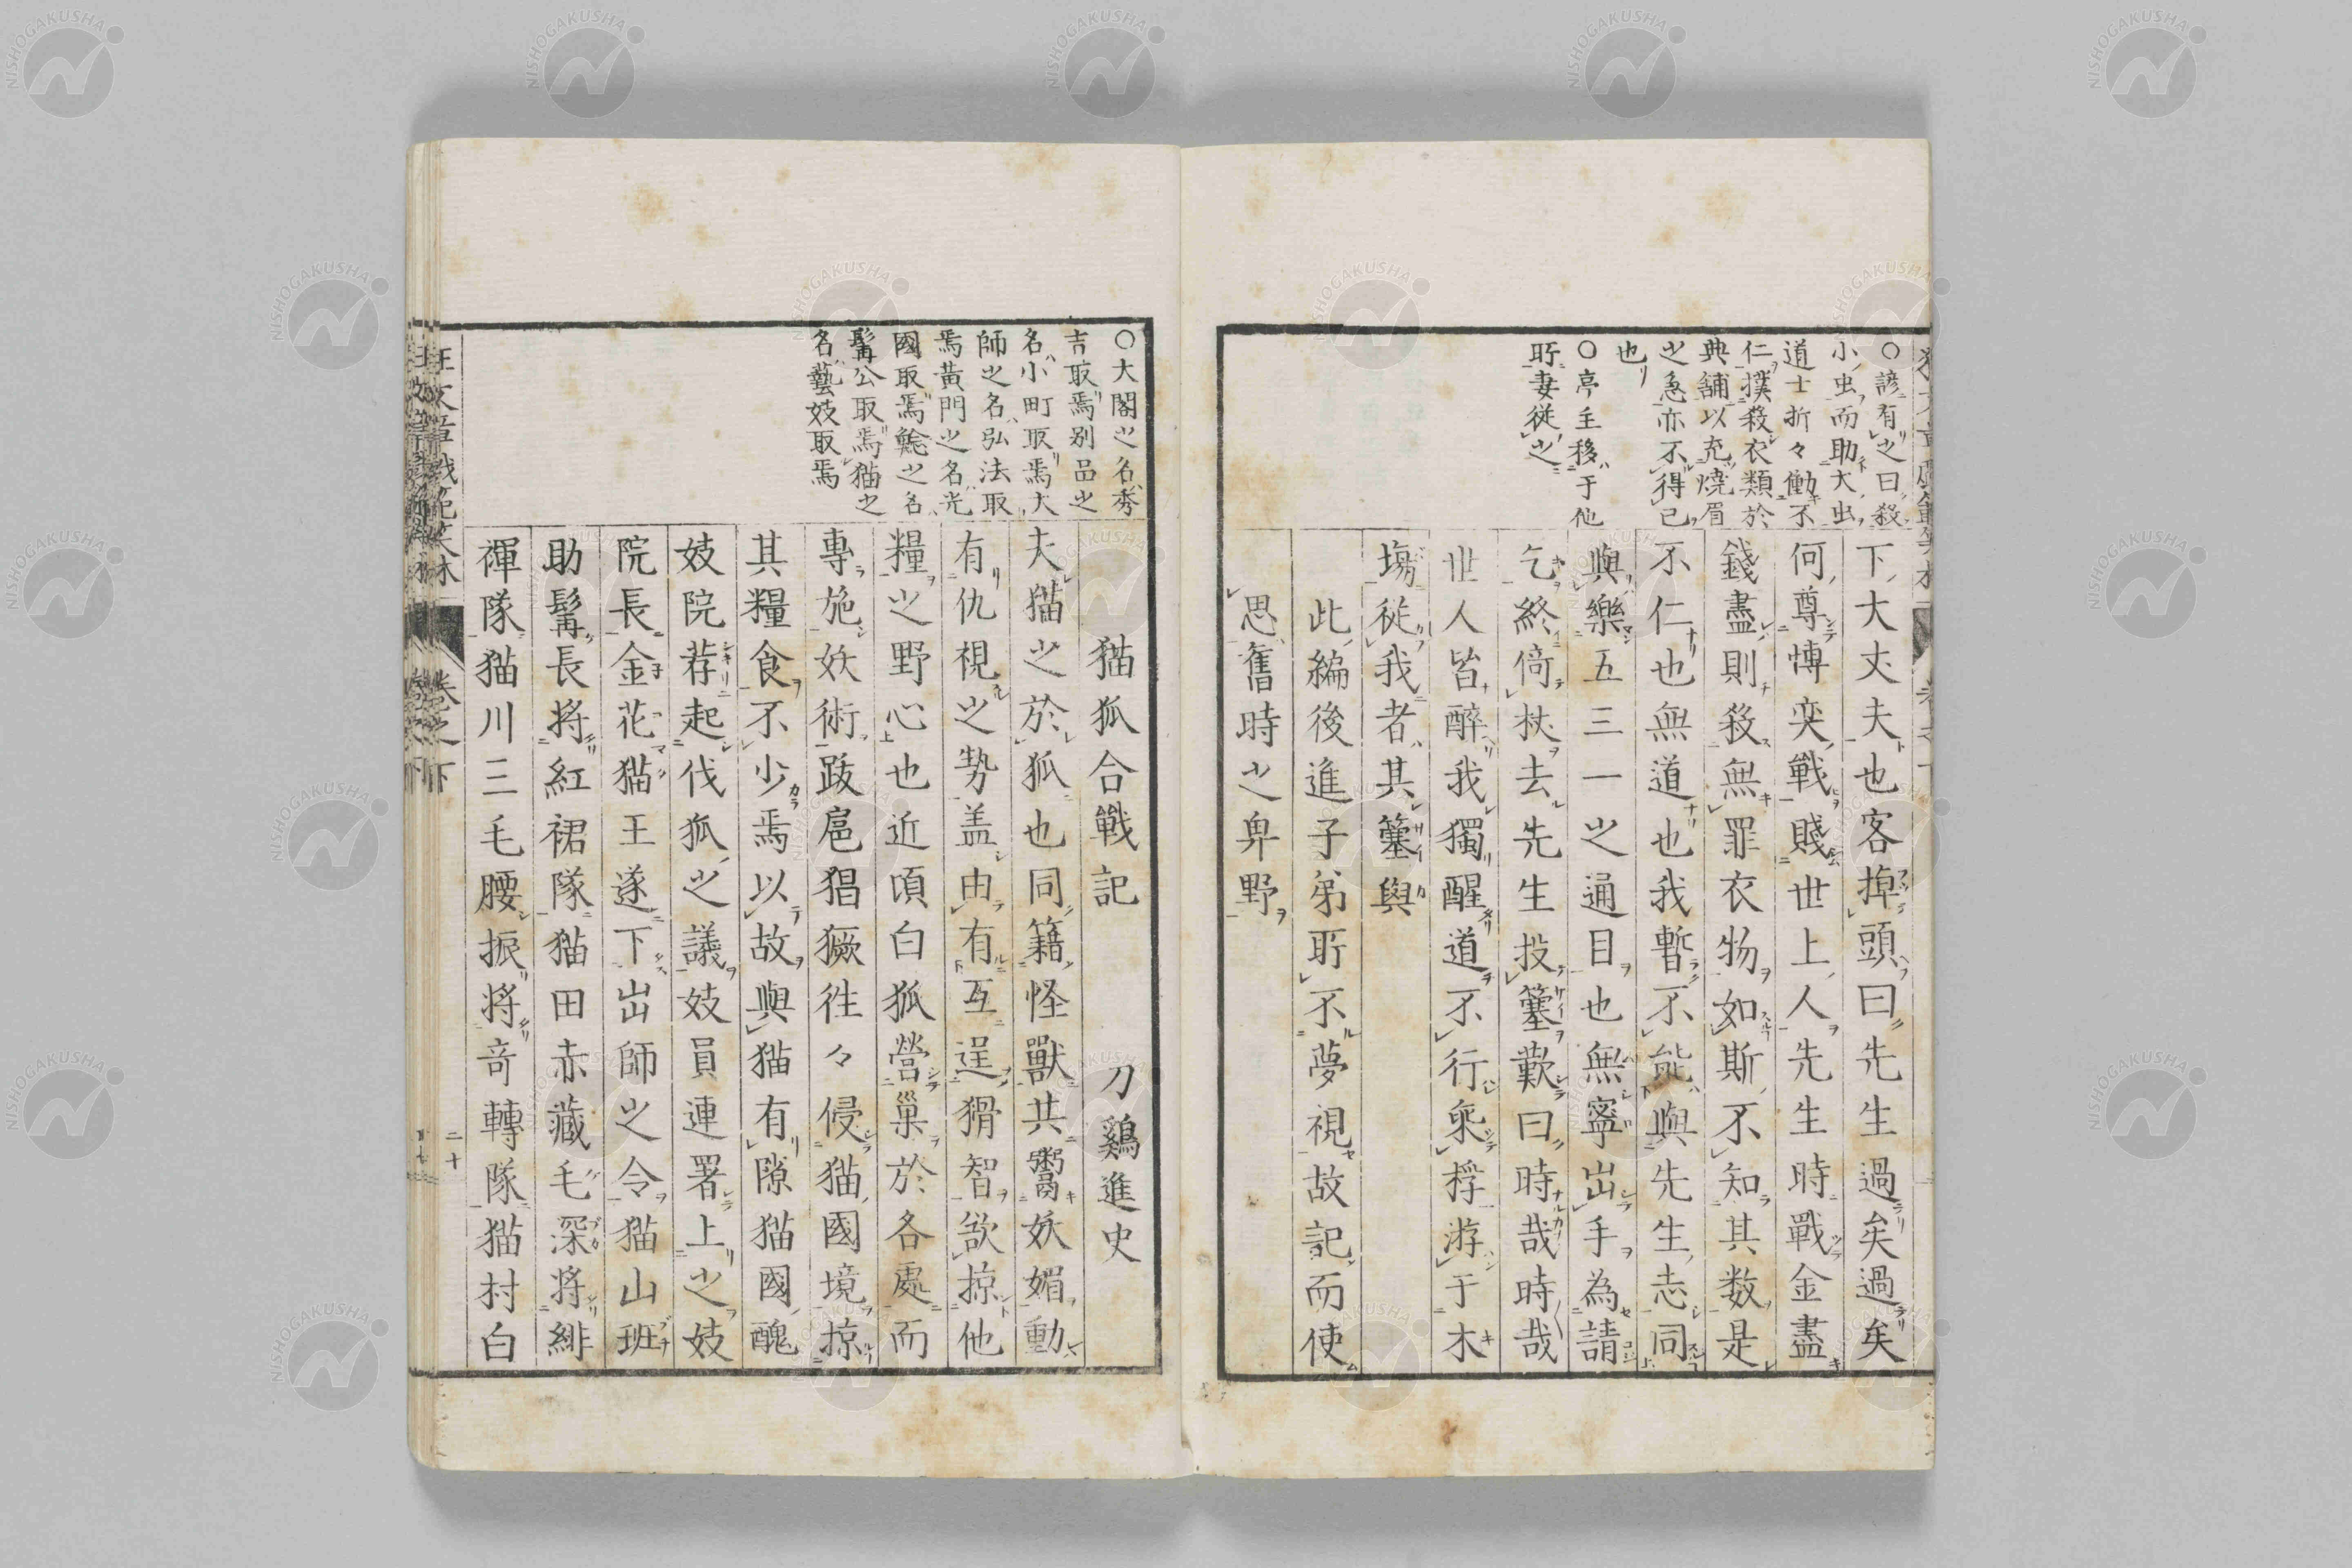 〇諺有之曰殺
小虫而助大虫
道士折々働不
仁撲殺衣類於
典舗以充焼眉
之急亦不得已
也
〇亭主移于他
所妻従之
下大丈夫也客掉頭曰先生過矣過矣
何尊博奕戰賤世上人先生時戰金盡
錢盡則殺無罪衣物如斯不知其数是
不仁也無道也我暫不能與先生志同
與樂五三一之通目也無寧出手為請
乞終倚杖去先生投簺歎曰時哉時哉
世人皆醉我獨醒道不行乗桴游于木
塲従我者其簺與
此編後進子弟所不夢視故記而使
思舊時之卑野
〇大閤之名秀
吉取焉別品之
名小町取焉大
師之名弘法取
焉黄門之名光
國取焉鯰之名
髯公取焉猫之
名藝妓取焉
猫狐合戰記
刀鷄進史
夫猫之於狐也同籍怪獸共鬻妖媚動
有仇視之勢盖由有互逞猾智欲掠他
糧之野心也近頃白狐營巢於各處而
專施妖術跋扈猖獗徃々侵猫國境掠
其糧食不少焉以故與猫有隙猫國醜
妓院荐起伐狐之議妓員連署上之妓
院長金花猫王遂下出師之令猫山班
助髯長将紅裙隊猫田赤藏毛深将緋
褌隊猫川三毛腰振将竒轉隊猫村白
卷之下
二十
NISHOGAKUSHA